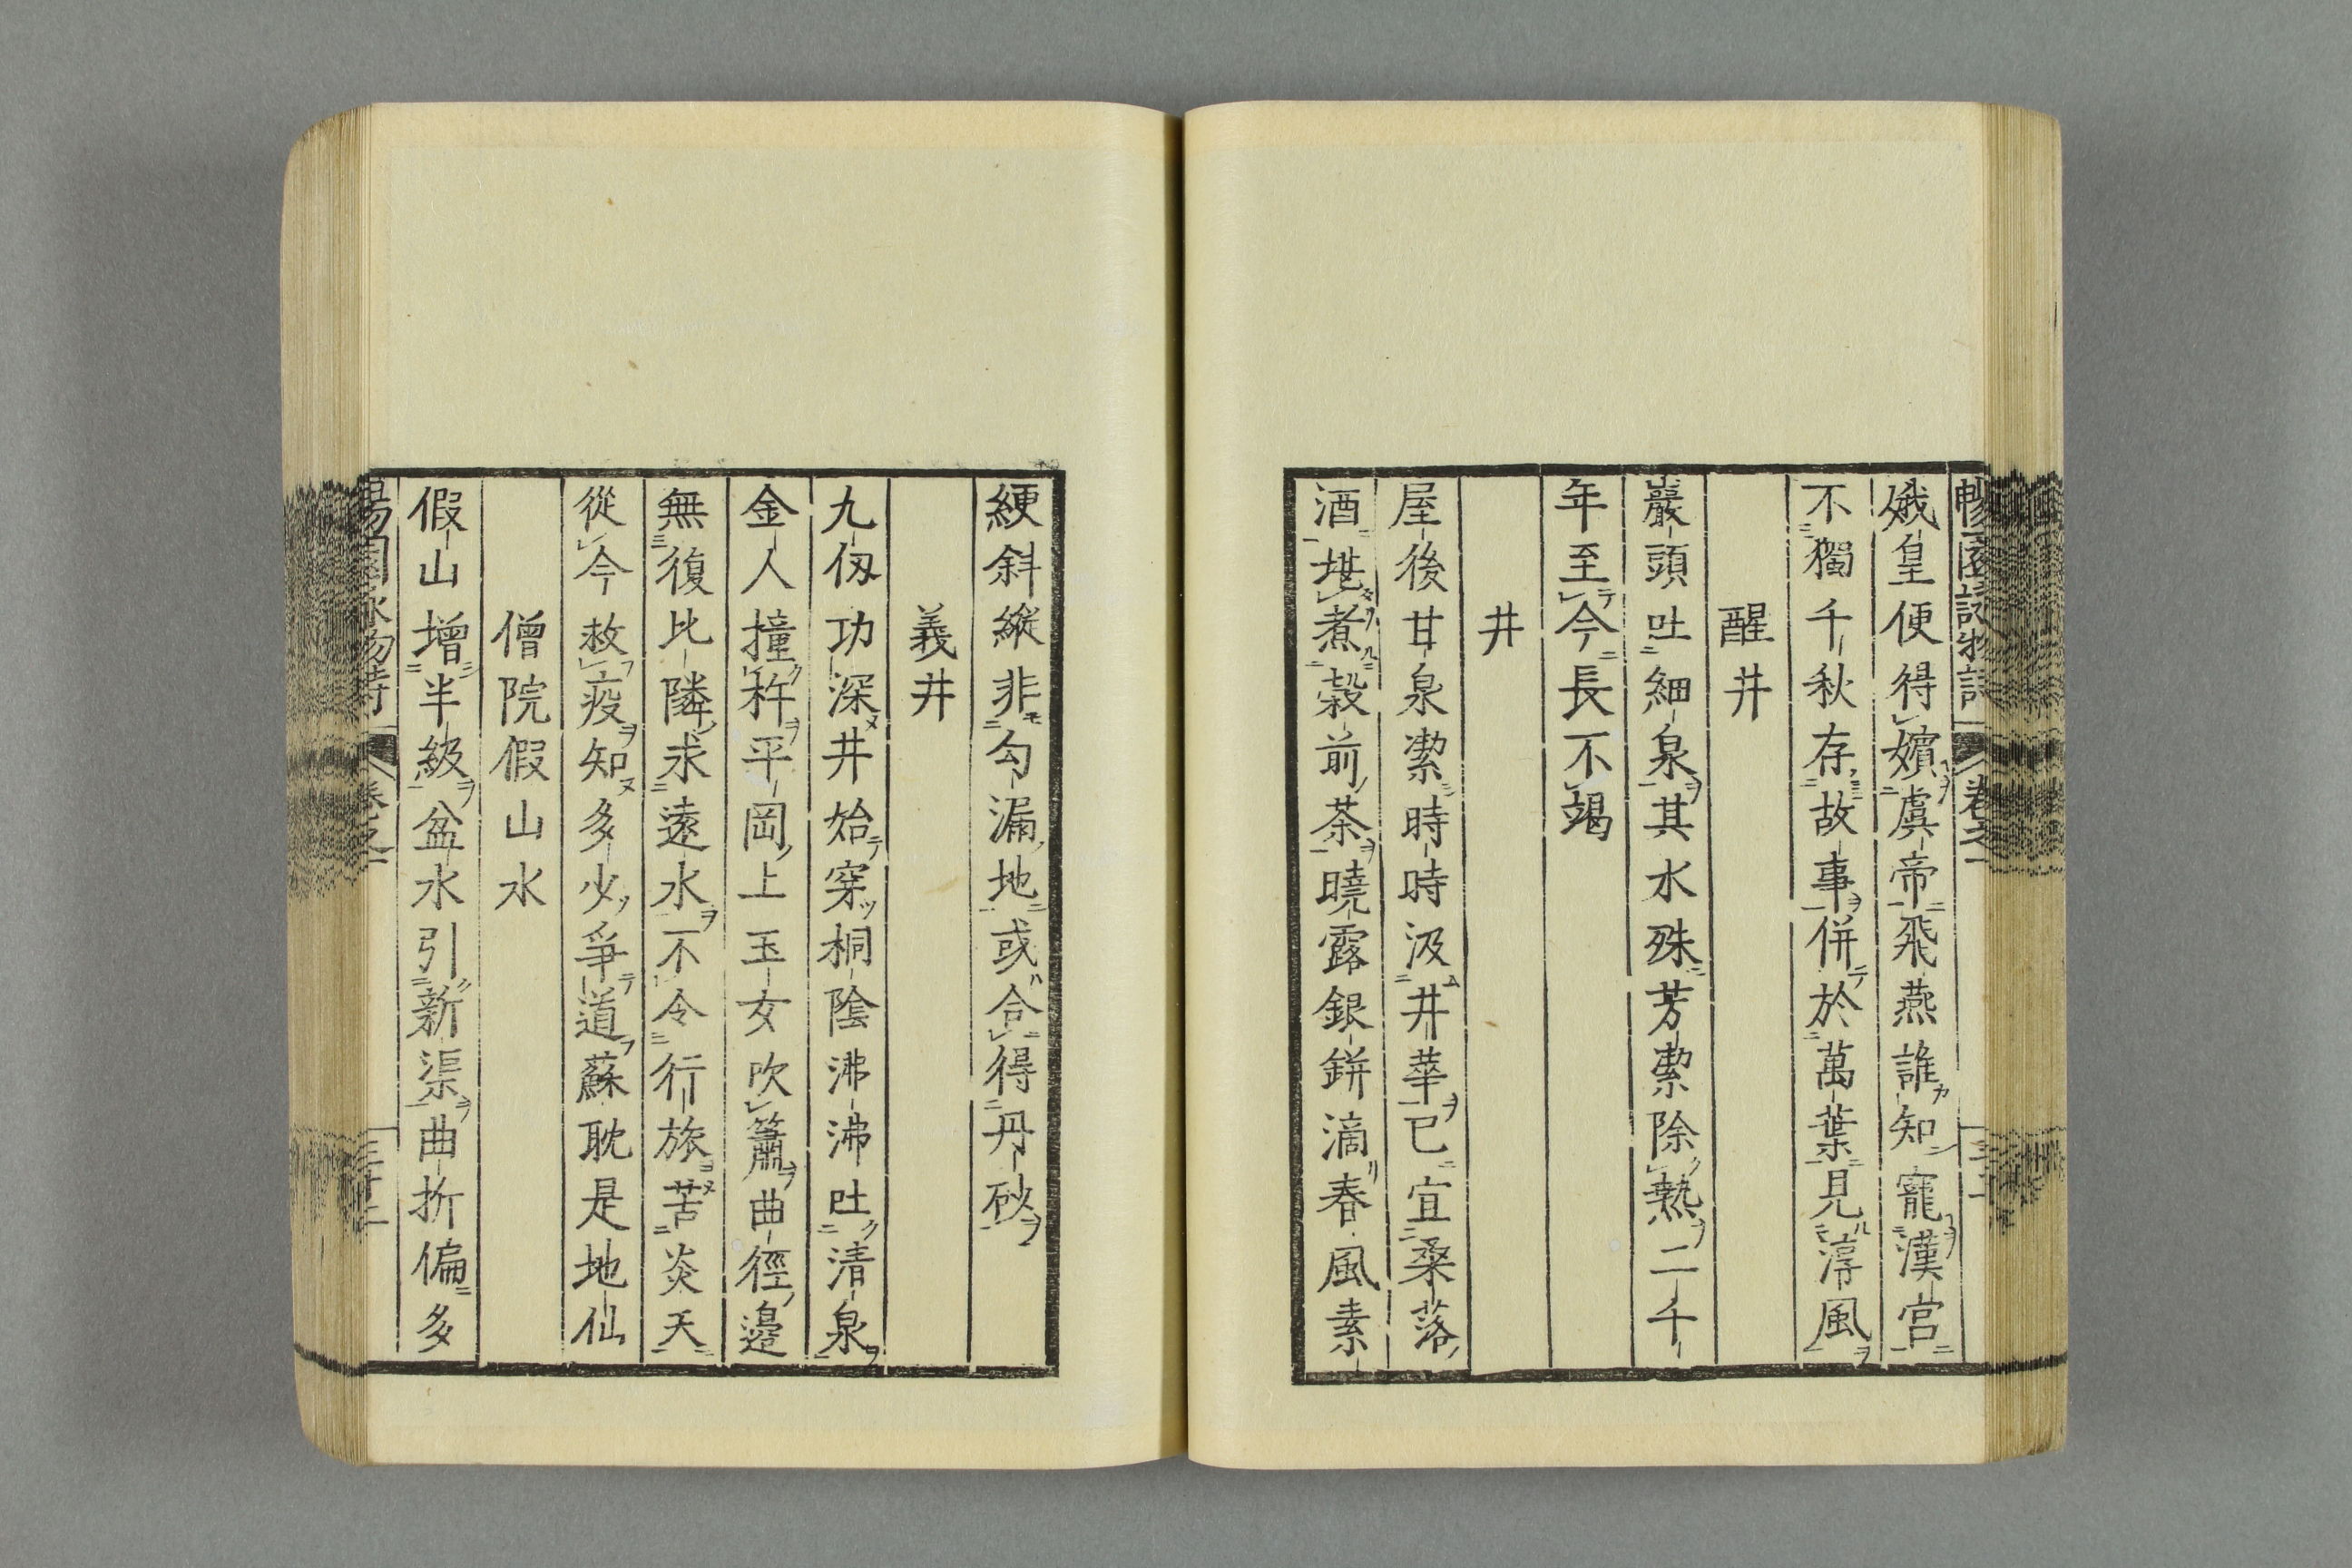 娥皇便得嬪虞帝飛燕誰知寵漢宮
不獨千秋存故事併於萬葉見淳風
醒井
巖頭吐細泉其水殊芳潔除熱二千
年至今長不竭
井
屋後甘泉潔時時汲井華已宜桑落
酒堪煮穀前茶曉露銀鉼滴春風素
綆斜縱非勾漏地或合得丹砂
義井
九仭功深井始穿桐陰沸沸吐清泉
金人撞杵平岡上玉女吹簫曲徑邊
無復比隣求遠水不令行旅苦炎天
從今救疫知多少爭道蘇耽是地仙
僧院假山水
假山增半級盆水引新渠曲折偏多